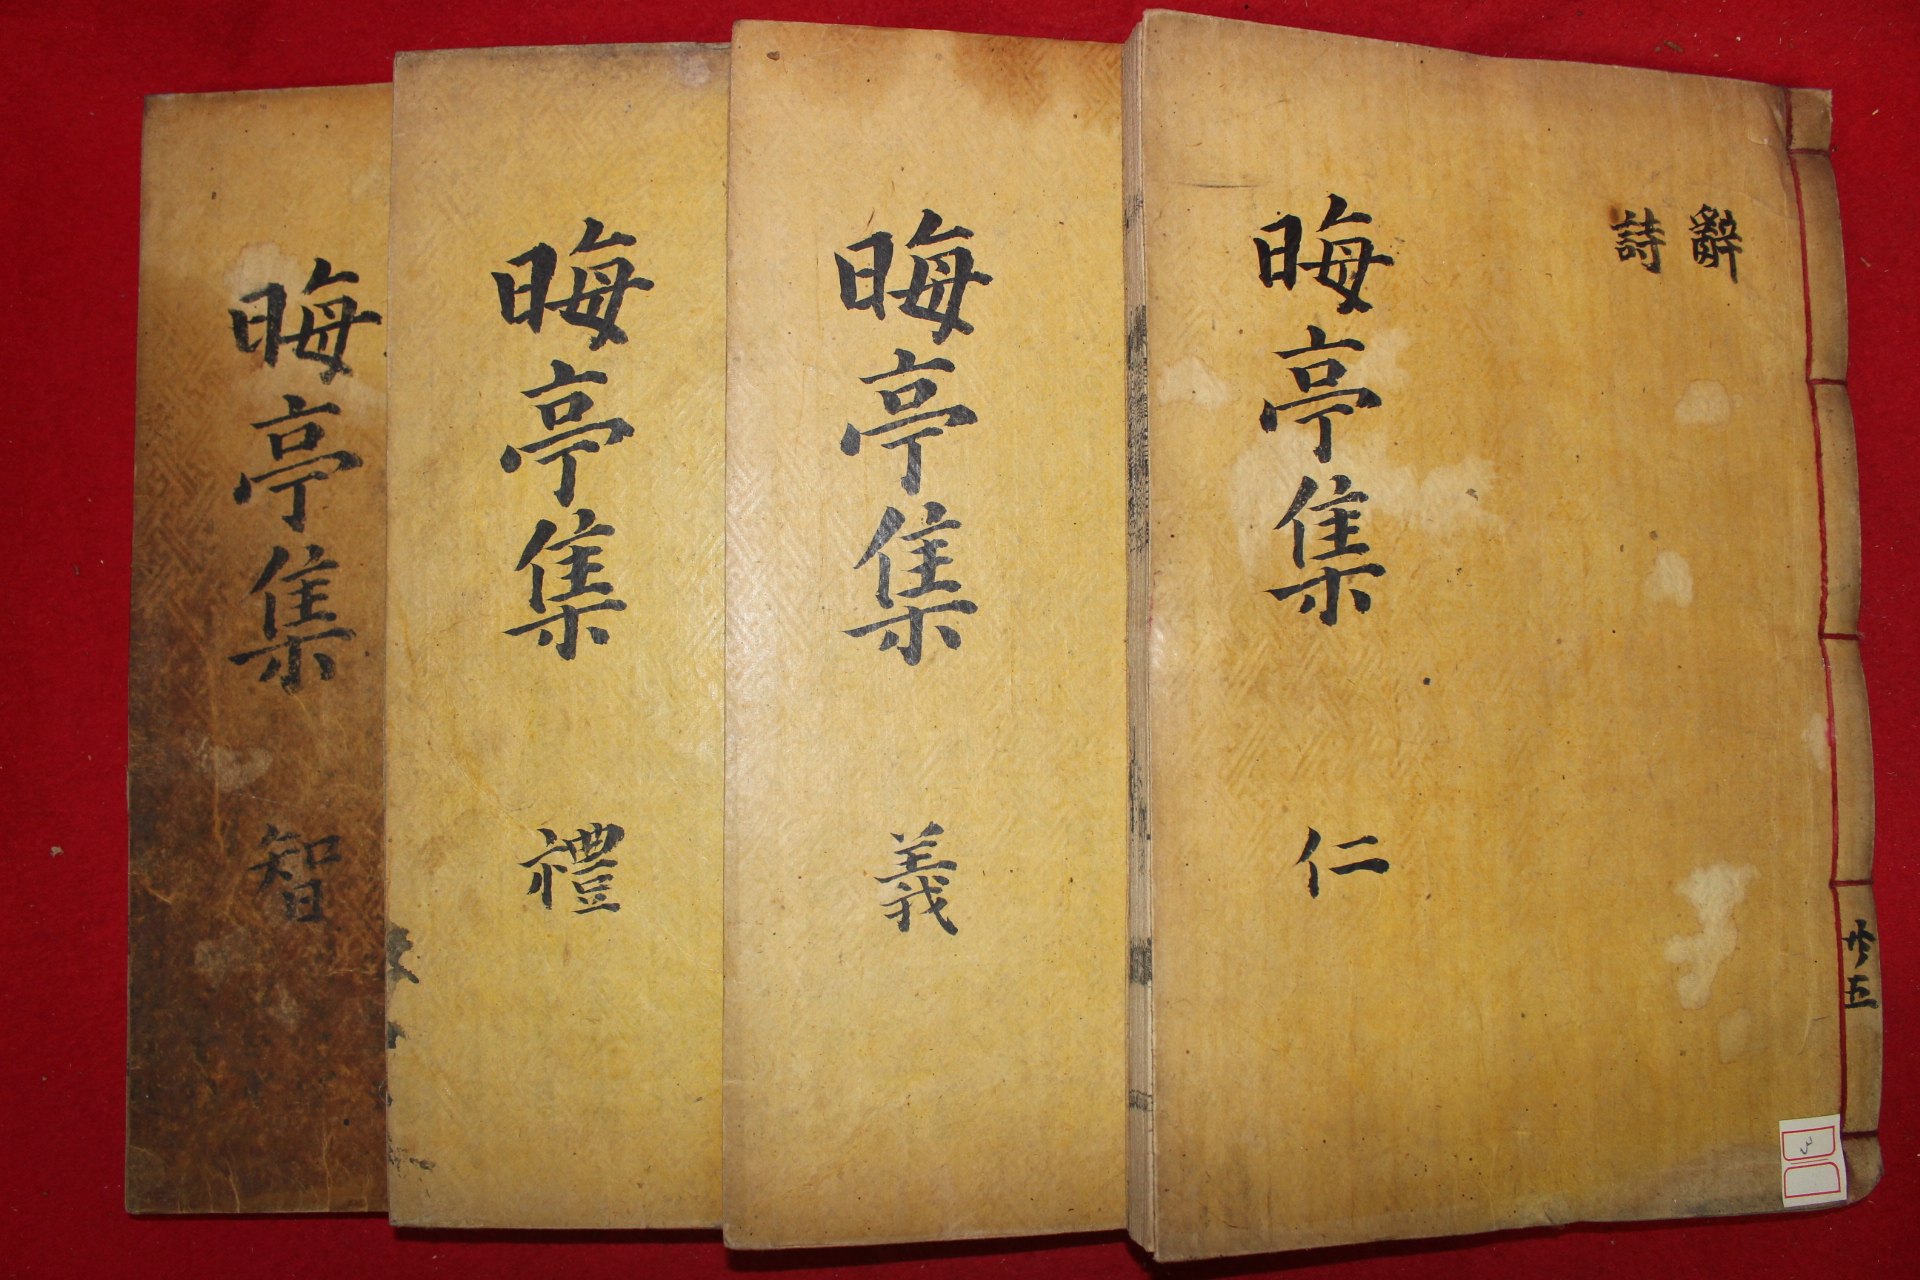 辭
詩
晦亭集
仁
晦亭集
義
晦亭集
禮
晦亭集
智
五
3